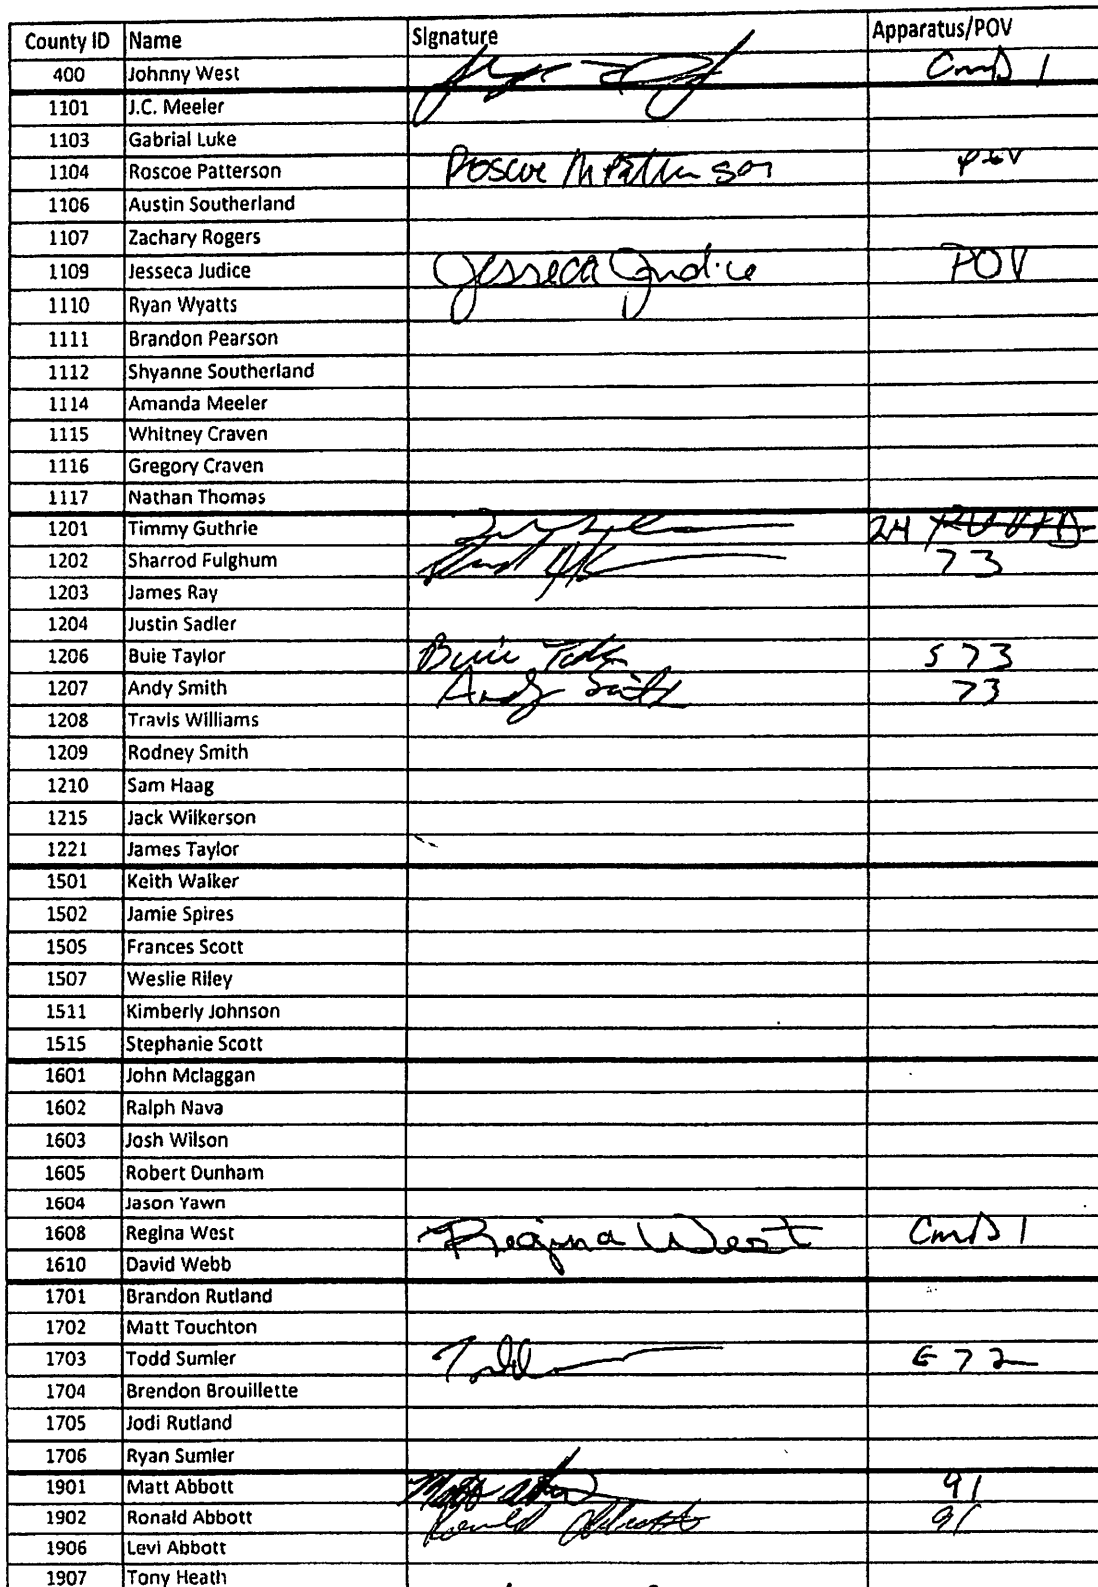 County ID Name Signature Apparatus/POV
400 Johnny West CmD 1
1101 J.C. Meeler
1103 Gabrial Luke
1104 Roscoe Patterson Roscoe M Patterson POV
1106 Austin Southerland
1107 Zachary Rogers
1109 Jesseca Judice Jesseca Judice POV
1110 Ryan Wyatts
1111 Brandon Pearson
1112 Shyanne Southerland
1114 Amanda Meeler
1115 Whitney Craven
1116 Gregory Craven
1117 Nathan Thomas
1201 Timmy Guthrie 24
1202 Sharrod Fulghum 73
1203 James Ray
1204 Justin Sadler
1206 Buie Taylor Buie Taylor S 73
1207 Andy Smith Andy Smith 73
1208 Travis Williams
1209 Rodney Smith
1210 Sam Haag
1215 Jack Wilkerson
1221 James Taylor
1501 Keith Walker
1502 Jamie Spires
1505 Frances Scott
1507 Weslie Riley
1511 Kimberly Johnson
1515 Stephanie Scott
1601 John Mclaggan
1602 Ralph Nava
1603 Josh Wilson
1605 Robert Dunham
1604 Jason Yawn
1608 Regina West Regina West CmD 1
1610 David Webb
1701 Brandon Rutland
1702 Matt Touchton
1703 Todd Sumler Todd E 72
1704 Brendon Brouillette
1705 Jodi Rutland
1706 Ryan Sumler
1901 Matt Abbott Matt Abbott 91
1902 Ronald Abbott Ronald Abbott 91
1906 Levi Abbott
1907 Tony Heath